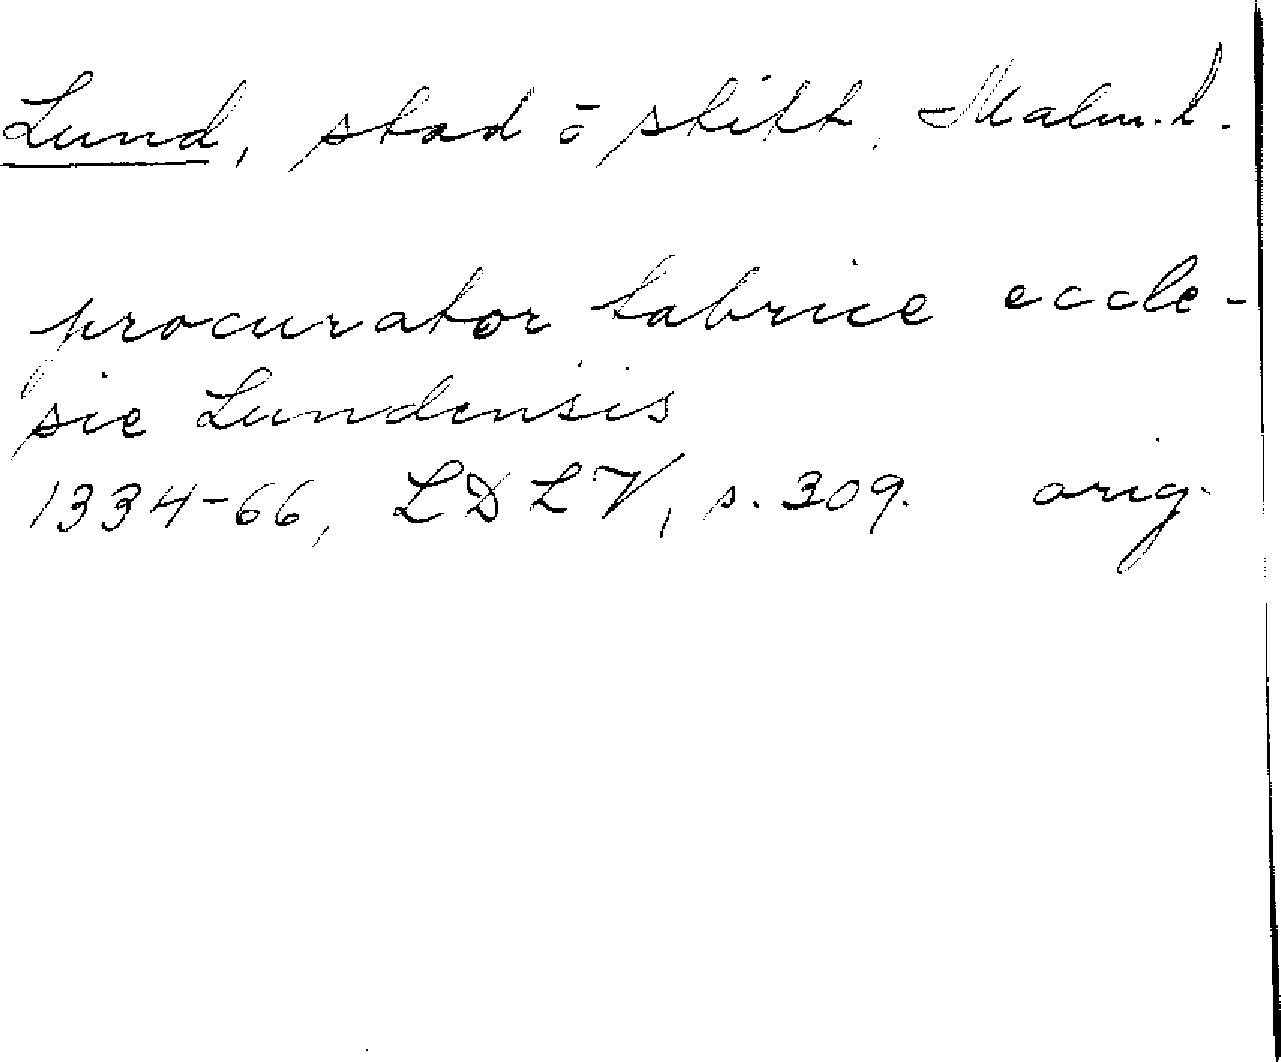 Lund, stad o stift, Malm.l.
procurator fabrice eccle-
sie Lundensis
1334-66, LDLV, s. 309. orig.